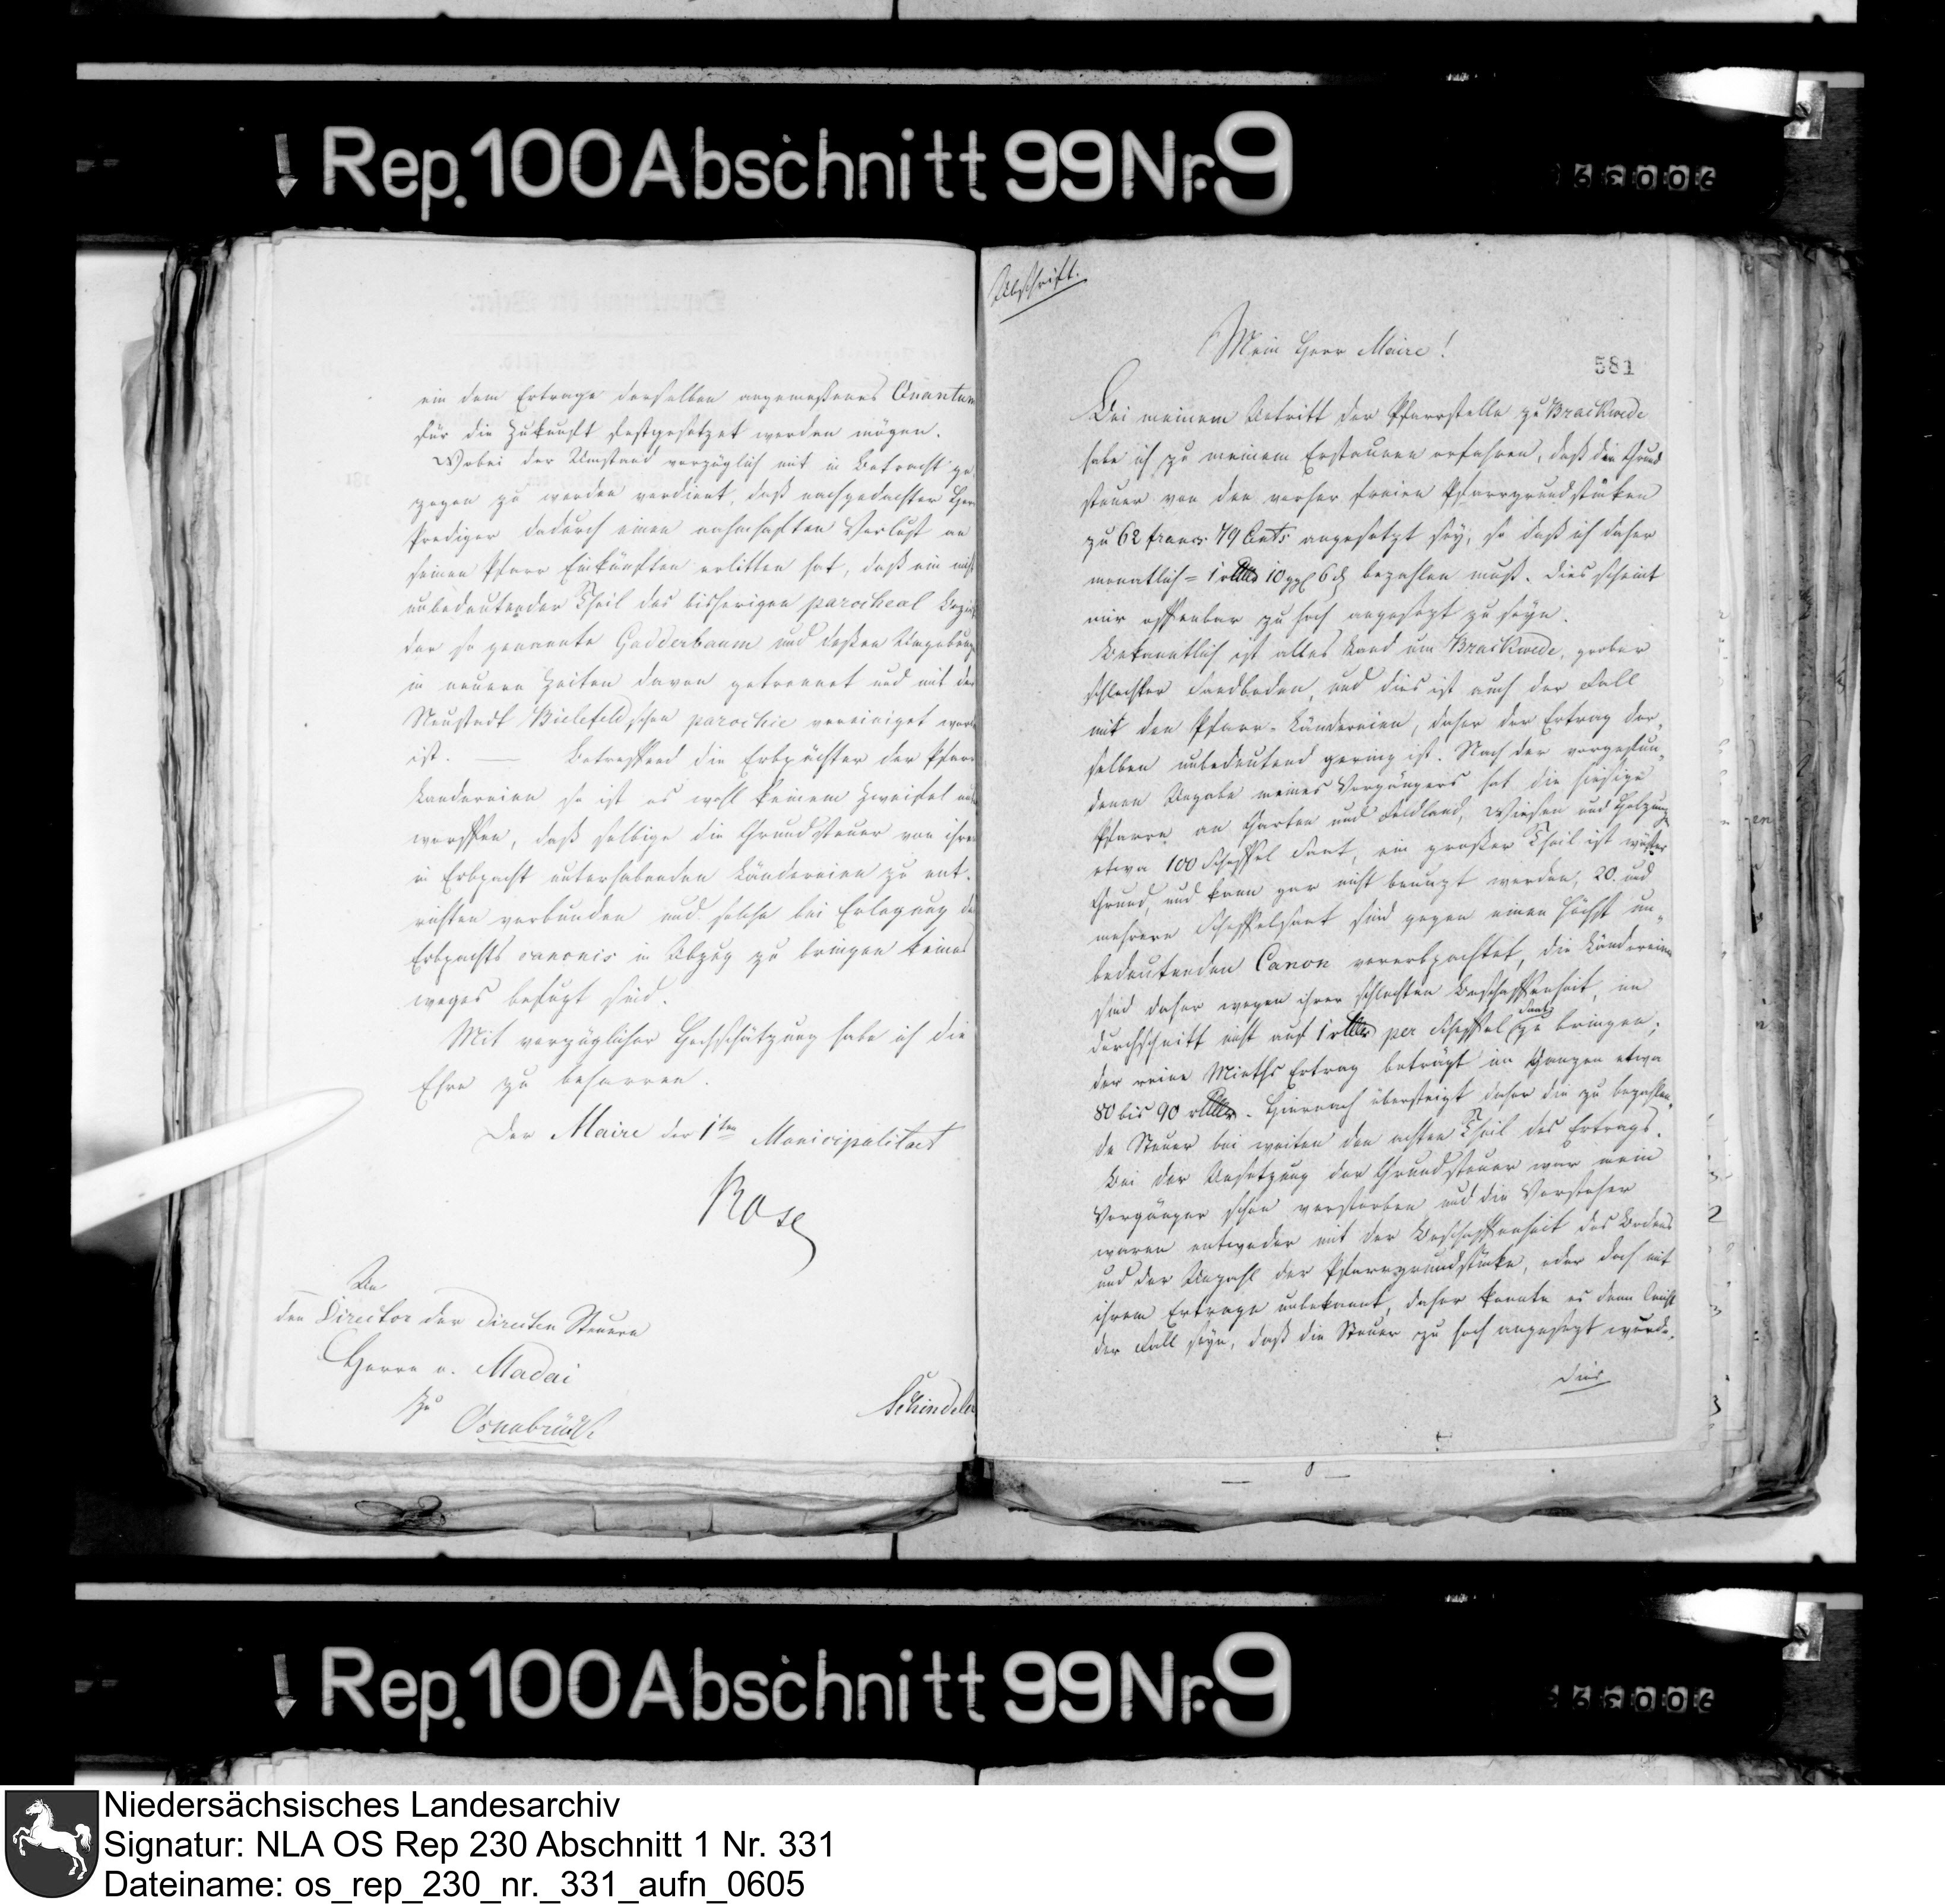 Rep. 100 Abschnitt 99 Nr. 9
ein dem Ertrage derselben angemeßenes Quantum
für die Zukunft festgesetzet werden mögen.
Wobei der Umstand vorzüglich mit in Betracht ge
zogen zu werden verdient, daß nachgedachter Herr
Prediger dadurch einen nahmhaften Verlust an
seinen Pfarr Einkünften erlitten hat, daß ein nicht
unbedeutender Theil des bisherigen parocheal Bezirks
der so genannte Gadderbaum und deßen Umgebung
in neuern Zeiten davon getrennet und mit der
Neustadt Bielefeldschen parochie vereiniget worden
ist. — Betreffend die Erbpächter der Pfarr
Landereien so ist es wohl keinem Zweifel unter
worffen, daß selbige die Grundsteuer von ihren
in Erbpacht unterhabenden Ländereien zu ent-
richten verbunden und solche bei Erlegung des
Erbpachts canonis in Abzug zu bringen keines
weges befugt sind.
Mit vorzüglicher Hochschätzung habe ich die
Ehre zu beharren.
Der Maire der 1ten Municipalitaet
Rose
An
den Director der directen Steuern
Herrn v. Madai
zu
Osnabrück
Schindeler
Abschrift.
581
Mein Herr Maire!
Bei meinem Antritt der Pfarrstelle zu Brackwede
habe ich zu meinem Erstaunen erfahren, daß die Grund
steuer von den vorher freien Pfarrgrundstücken
zu 62 francs 79 Cents angesetzt sey, so daß ich daher
monatlich = 1 rthlr 10 ggl 6 d bezahlen muß. Dies scheint
mir offenbar zu hoch angesezt zu seyn.
Bekanntlich ist alles Land um Brackwede, grober
schlechter Sandboden, und dies ist auch der Fall
mit den Pfarr-Ländereien, daher der Ertrag der-
selben unbedeutend gering ist. Nach der vorgefun-
denen Angabe meines Vorgängers hat die hiesige
Pfarre an Garten und Feldland, Wiesen und Holzung
etwa 100 Scheffel Saat, ein großer Theil ist wüster
Grund, und kann gar nicht benuzt werden, 20. und
mehrere Scheffelsaat sind gegen einen höchst un-
bedeutenden Canon vererbpachtet, die Ländereien
sind daher wegen ihrer schlechten Beschaffenheit, im
durchschnitt nicht auf 1 rthlr per Scheffel Saat zu bringen;
der reine Mieths Ertrag beträgt im Ganzen etwa
80 bis 90 rthlr. Hiernach übersteigt daher die zu bezahlen-
de Steuer bei weiten den achten Theil des Ertrags.
Bei der Ansetzung der Grundsteuer war mein
Vorgänger schon verstorben und die Vorsteher
waren entweder mit der Beschaffenheit des Bodens
und der Anzahl der Pfarrgrundstücke, oder doch mit
ihrem Ertrage unbekannt, daher konnte es denn leicht
der Fall seyn, daß die Steuer zu hoch angesezt wurde.
Dies
Rep. 100 Abschnitt 99 Nr. 9
Niedersächsisches Landesarchiv
Signatur: NLA OS Rep 230 Abschnitt 1 Nr. 331
Dateiname: os_rep_230_nr._331_aufn_0605